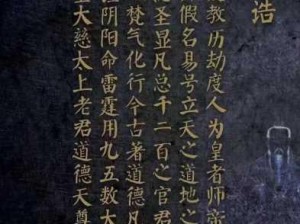 浩
教历劫度人为皇者师帝
假名易号立天之道地之
圣显凡总千二百之官君
梵气化行今古著道德凡
阴阳命雷霆用九五数大
大慈太上老君道德天尊